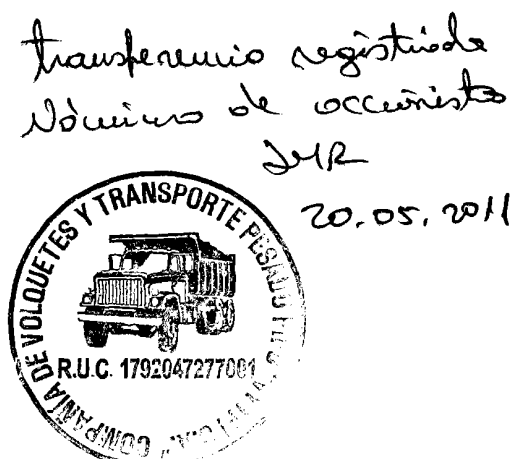 transferencia registrada
Nómina de accionistas
JMR
20.05.2011
COMPAÑÍA DE VOLQUETES Y TRANSPORTE PESADO
R.U.C. 1792047277001